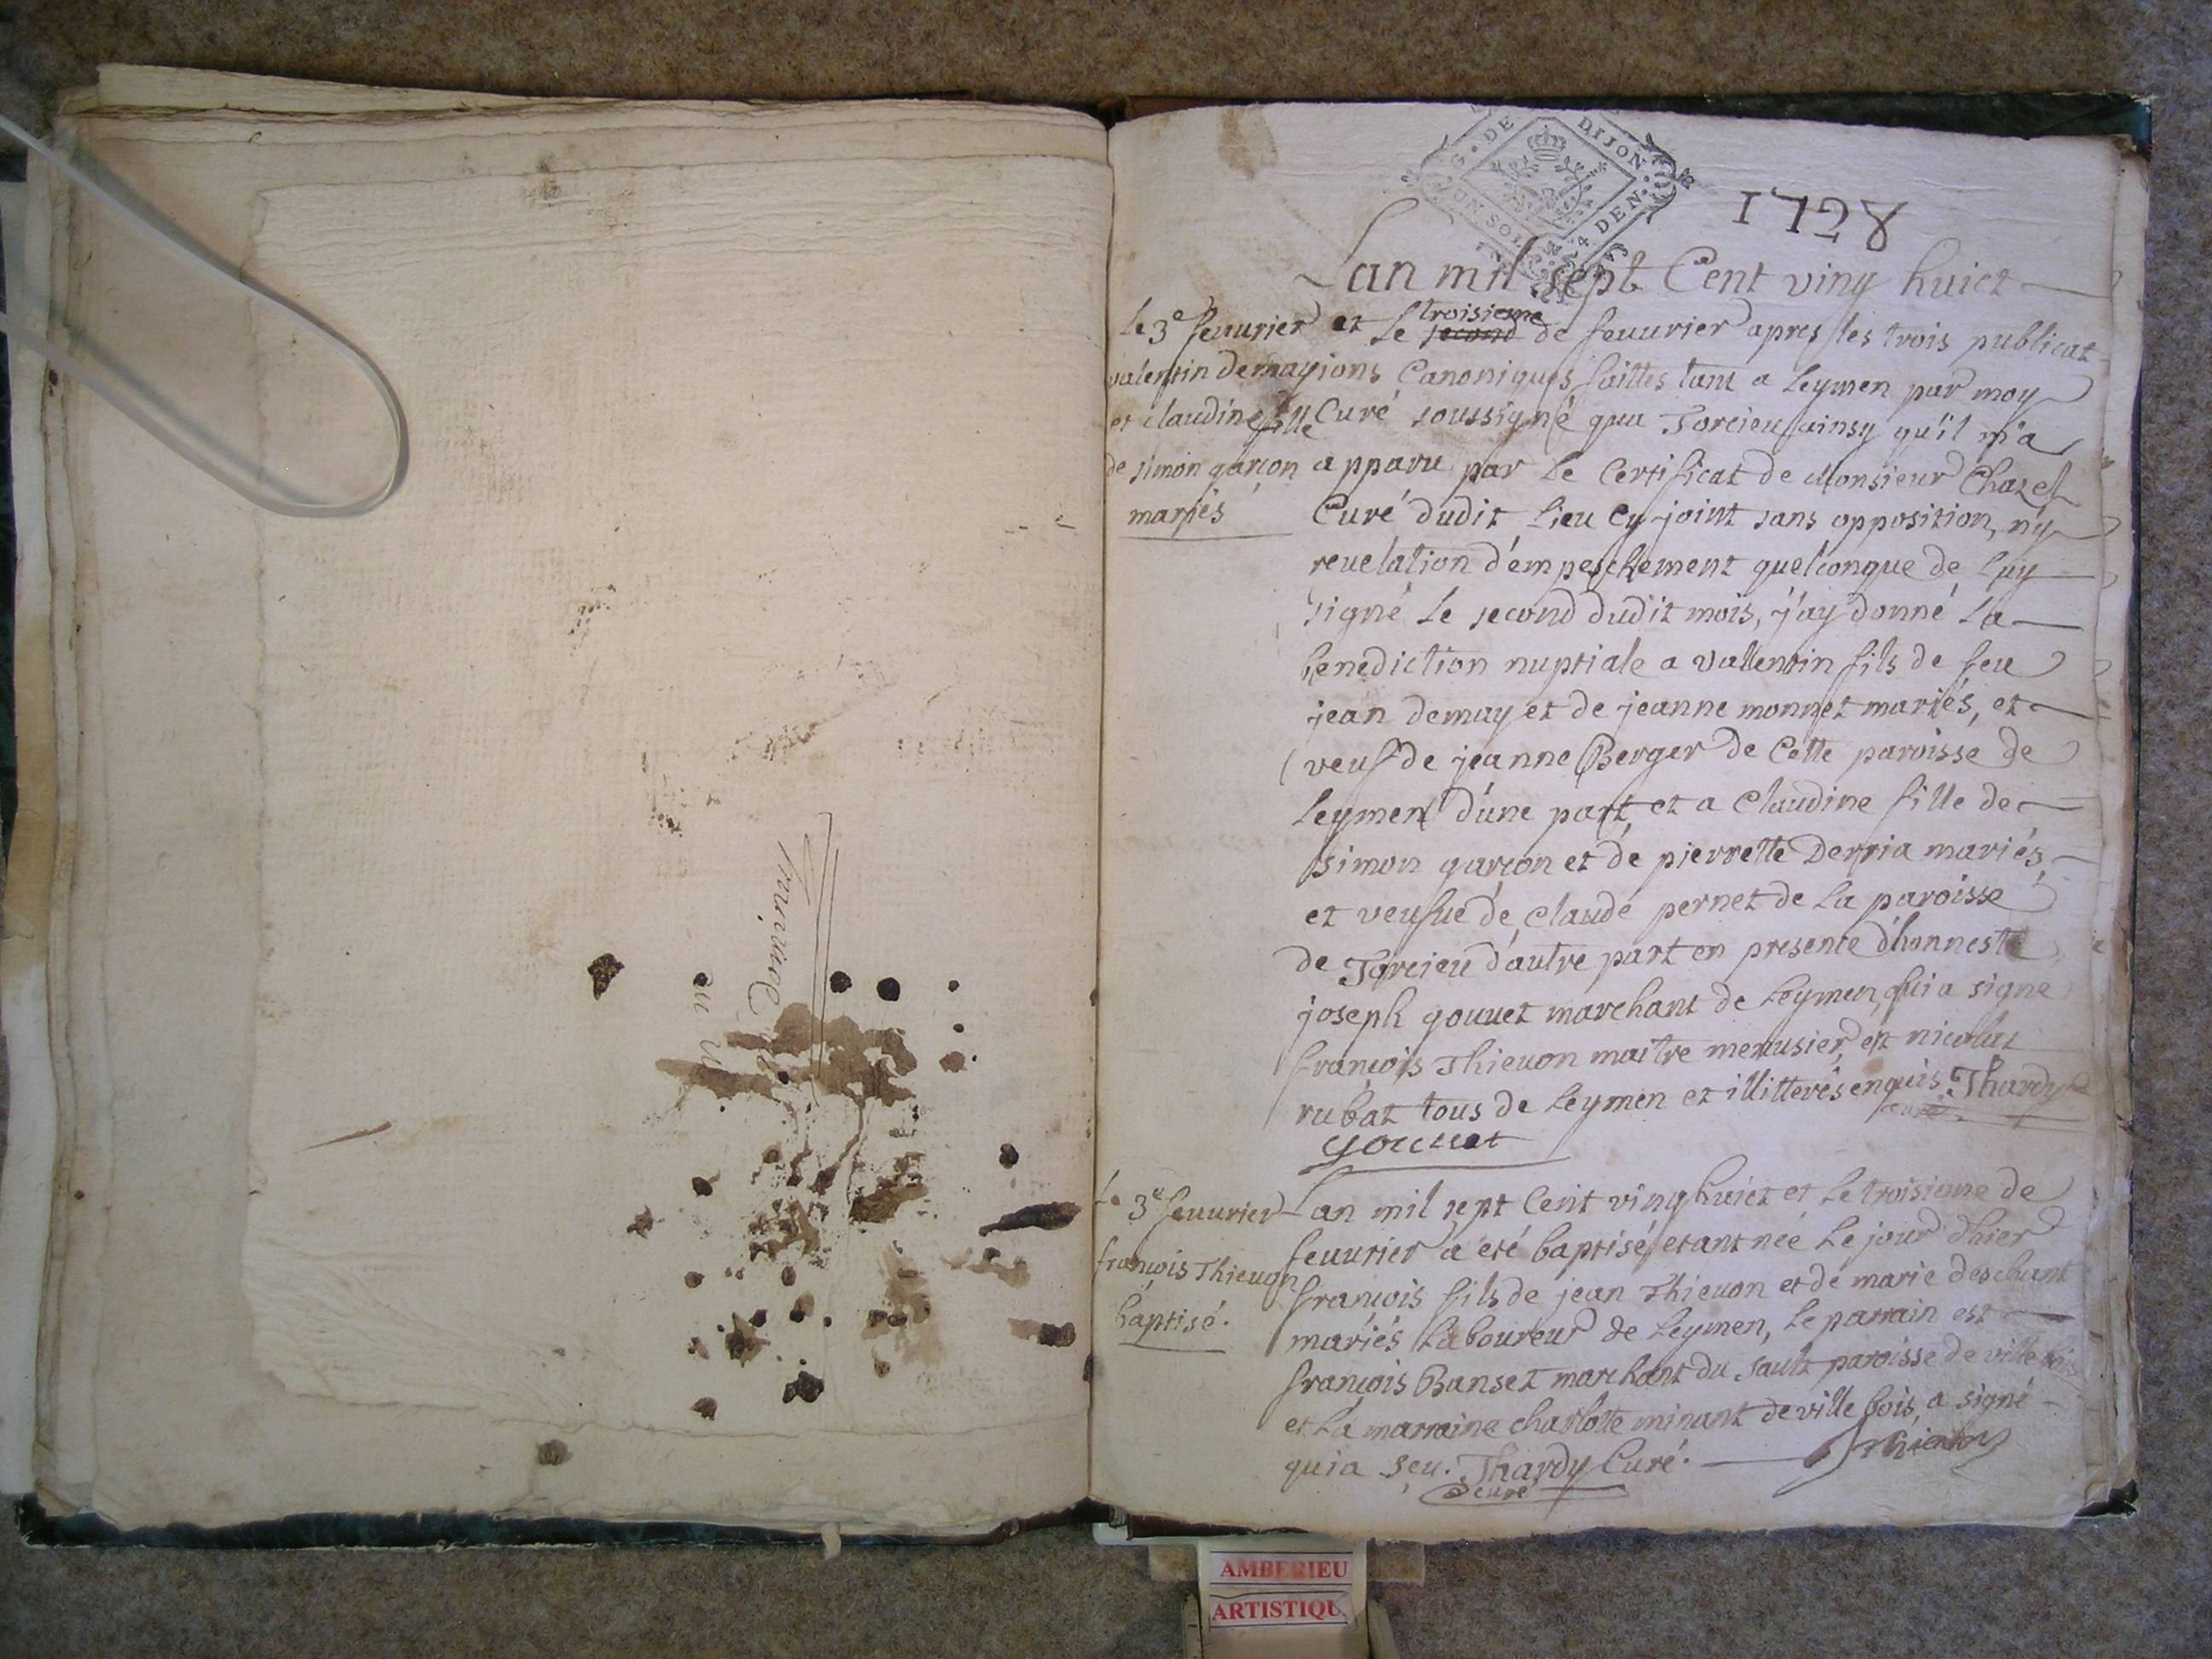 dominus
G. DE DIJON
UN SOL 4 DEN.
1728
Lan mil sept Cent ving huict
le 3e feuurier
valentin demay
et claudine fille
de simon garçon
mariés
et Le troisieme second de feuurier apres les trois publicat
ions Canoniques faittes tant a Leymen par moy
Curé soussigné qua Torcieu ainsy qu'il m'a
apparu par le Certificat de Monsieur Chazel
Curé dudit Lieu Cy joint sans opposition, ny
reuelation d'empeschement quelconque de Luy
signé Le second dudit mois, j'ay donné La
benediction nuptiale a vallentin fils de feu
jean demay et de jeanne monnet mariés, et
veuf de jeanne Berger de Cette paroisse de
Leymen d'une part, et a Claudine fille de
simon garçon et de pierrette Derria mariés,
et veufue de Claude pernet de La paroisse
de Torcieu d'autre part en presence d'honneste
joseph gouuet marchant de Leymen, qui a signé
françois Thieuon maitre menusier, et nicolas
rubat tous de Leymen et illitterés enquis. Thardy
curé
gouuet
Le 3e feuurier
françois Thieuon
baptisé.
Lan mil sept Cent ving huict et Le troisieme de
feuurier a eté baptisé, etant née Le jour d'hier
françois fils de jean Thieuon et de marie deschant
mariés Laboureur de Leymen, Le parrain est
françois Banset marchant du Sault paroisse de villebois
et La marraine charlotte minant de ville bois, a signé
qui a sçu. Thardy Curé.
curé
AMBERIEU
ARTISTIQU